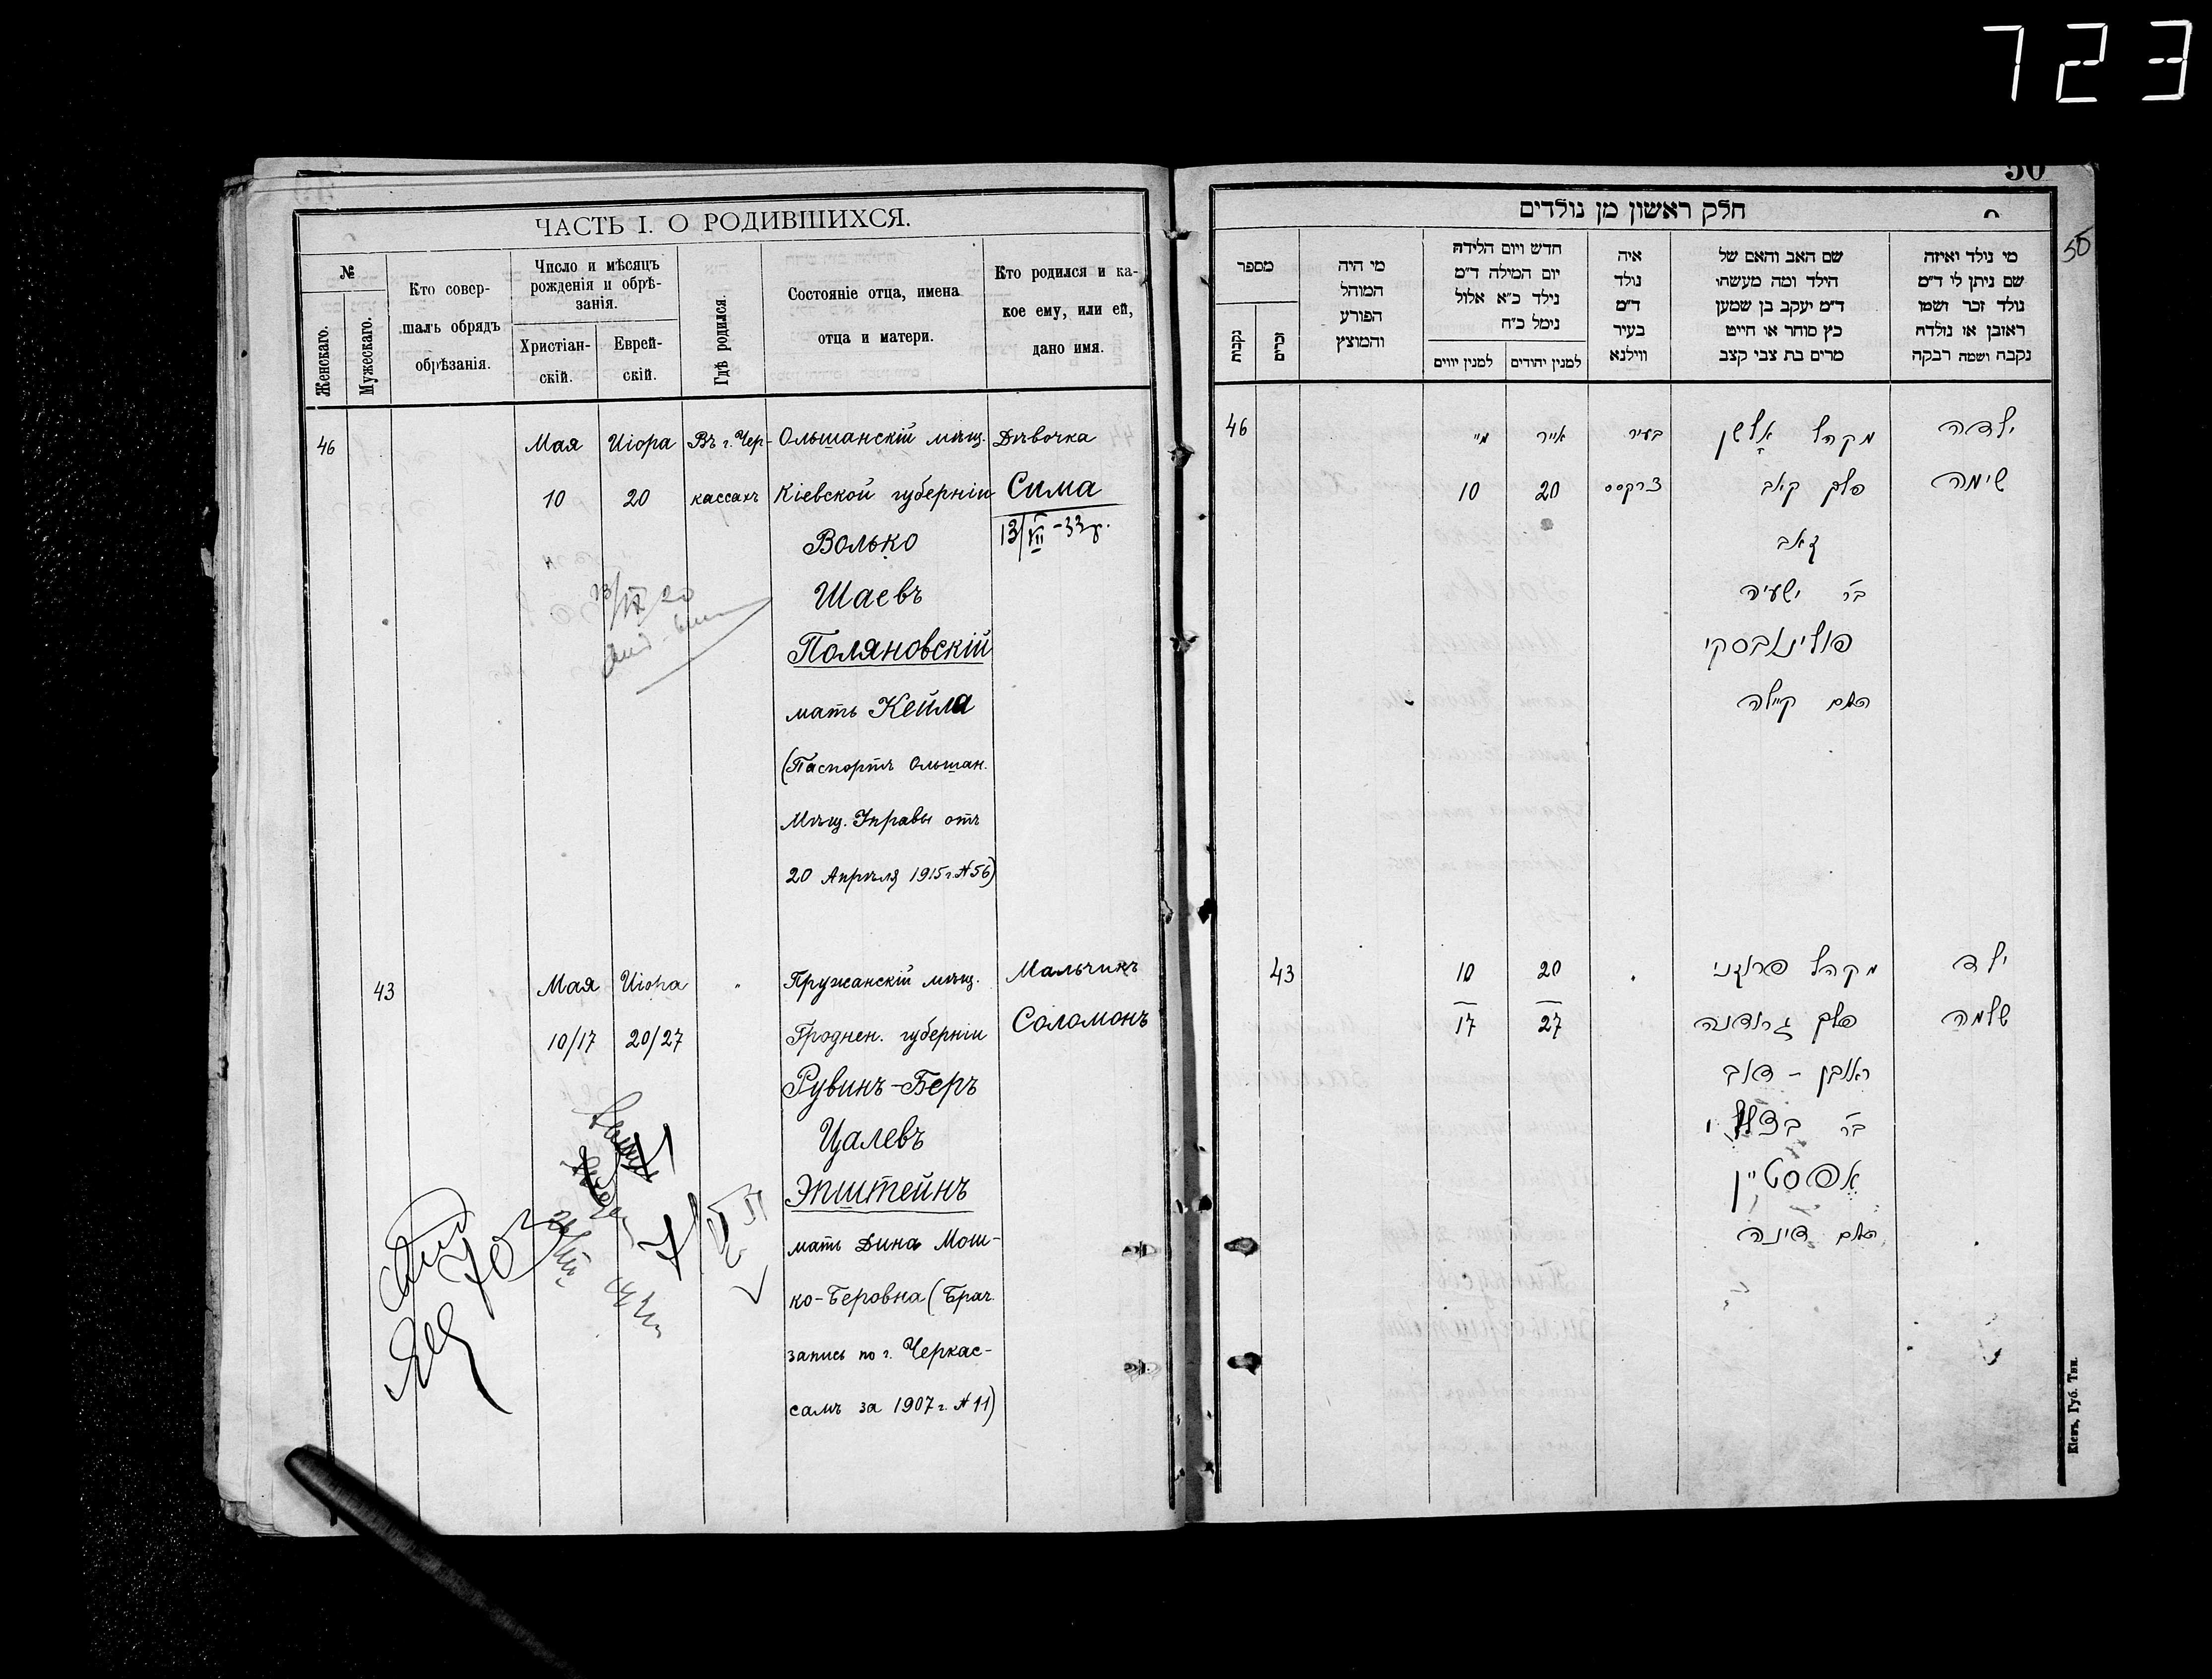 723
ЧАСТЬ I. О РОДИВШИХСЯ.
№
Женскаго.
Мужескаго.
Кто совер-
шалъ обрядъ
обрѣзанія.
Число и мѣсяцъ
рожденія и обрѣ-
занія.
Христіан-
скій.
Еврей-
скій.
Гдѣ родился.
Состояніе отца, имена
отца и матери.
Кто родился и ка-
кое ему, или ей,
дано имя.
46
Мая
10
Иіора
20
Въ г. Чер-
кассахъ
Ольшанскій мѣщ.
Кіевской губерніи
Волько
Шаевъ
Поляновскій
мать Кейла
(Паспортъ Ольшан.
Мѣщ. Управы отъ
20 Апрѣля 1915 г. № 56)
Дѣвочка
Сима
13/VII-33г.
43
Мая
10/17
Иіора
20/27
"
Пружанскій мѣщ.
Гроднен. губерніи
Рувинъ-Беръ
Цалевъ
Эпштейнъ
мать Дина Мош-
ко-Беровна (Брач.
запись по г. Черкас-
самъ за 1907 г. № 11)
Мальчикъ
Соломонъ
50
50
חלק ראשון מן נולדים
מספר
נקבות
זכרים
מי היה
המוהל
הפורע
והמוצץ
חדש ויום הלידה
יום המילה ד"מ
נילד כ"א אלול
נימל כ"ח
למנין יווים
למנין יהודים
איה
נולד
ד"מ
בעיר
ווילנא
שם האב והאם של
הילד ומה מעשהו
ד"מ יעקב בן שמען
כץ סוחר או חייט
מרים בת צבי קצב
מי נולד ואיזה
שם ניתן לו ד"מ
נולד זכר ושמו
ראובן או נולדה
נקבה ושמה רבקה
46
מיי
10
אייר
20
בעיר
צרקסס
מקהל אלשן
פלך קאב
זאב
בר ישעיה
פולינאבסקי
האם קיילה
ילדה
שימה
43
10
17
20
27
מקהל פרוזני
פלך גרודנה
ראובן - דוב
עפשטיין
האם דינה
ילד
שלמה
Кіевъ, Губ. Тип.